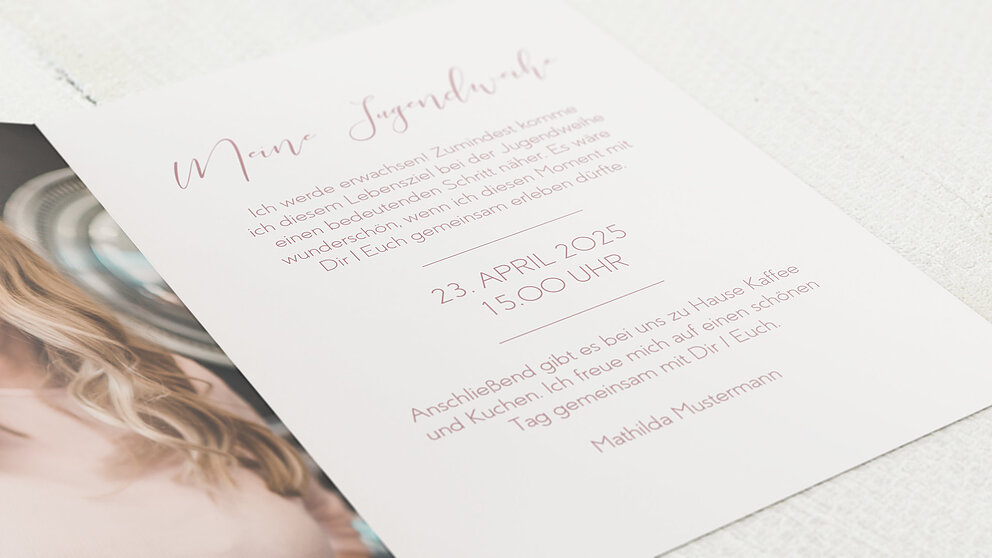 Meine Jugendweihe
Ich werde erwachsen! Zumindest komme
ich diesem Lebensziel bei der Jugendweihe
einen bedeutenden Schritt näher. Es wäre
wunderschön, wenn ich diesen Moment mit
Dir | Euch gemeinsam erleben dürfte.
23. APRIL 2025
15.00 UHR
Anschließend gibt es bei uns zu Hause Kaffee
und Kuchen. Ich freue mich auf einen schönen
Tag gemeinsam mit Dir | Euch.
Mathilda Mustermann